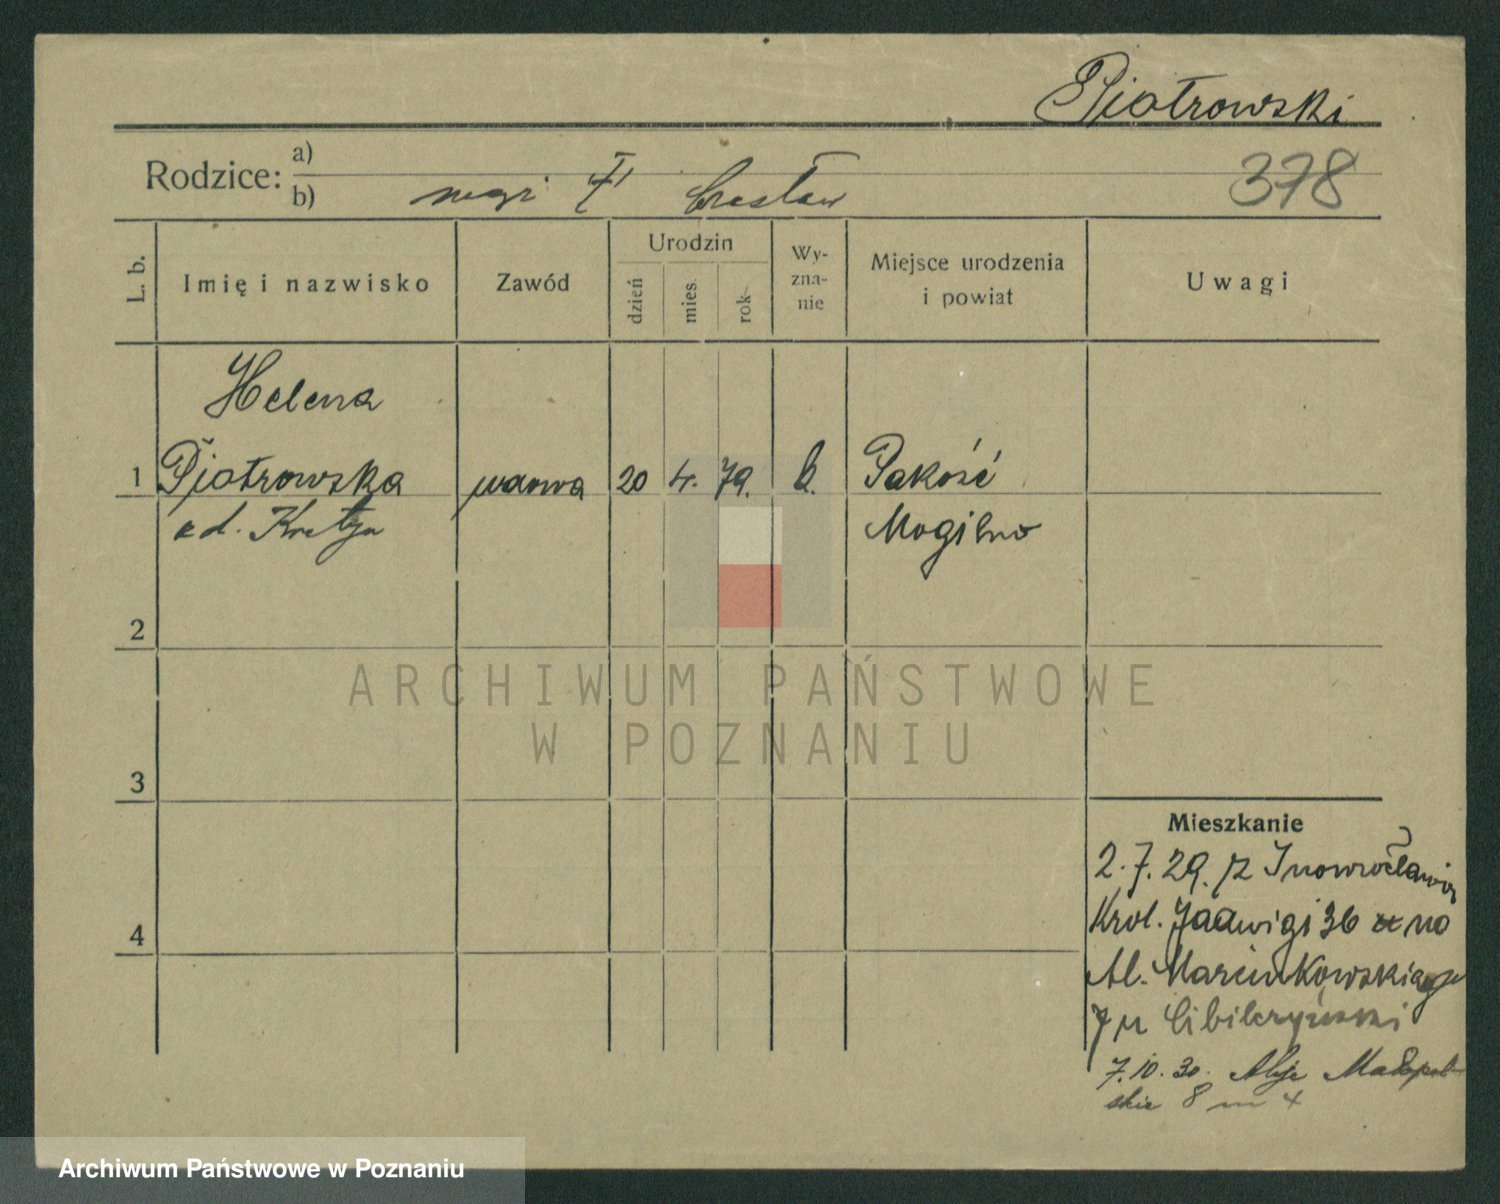 Piotrowski
Rodzice: a)
b) mąż † Czesław
378
L. b.
Imię i nazwisko
Zawód
Urodzin
dzień
mies.
rok
Wy-
zna-
nie
Miejsce urodzenia
i powiat
Uwagi
Helena
1 Piotrowska wdowa 20 4. 79. k. Pakość
Mogilno
2
3
4
Mieszkanie
2.7.29. z Inowrocławia
Krol. Jadwigi 36 na
Al. Marcinkowskiego
7 u
7.10.30. Aleje Małopol
skie 8 m 4
ARCHIWUM PAŃSTWOWE
W POZNANIU
Archiwum Państwowe w Poznaniu